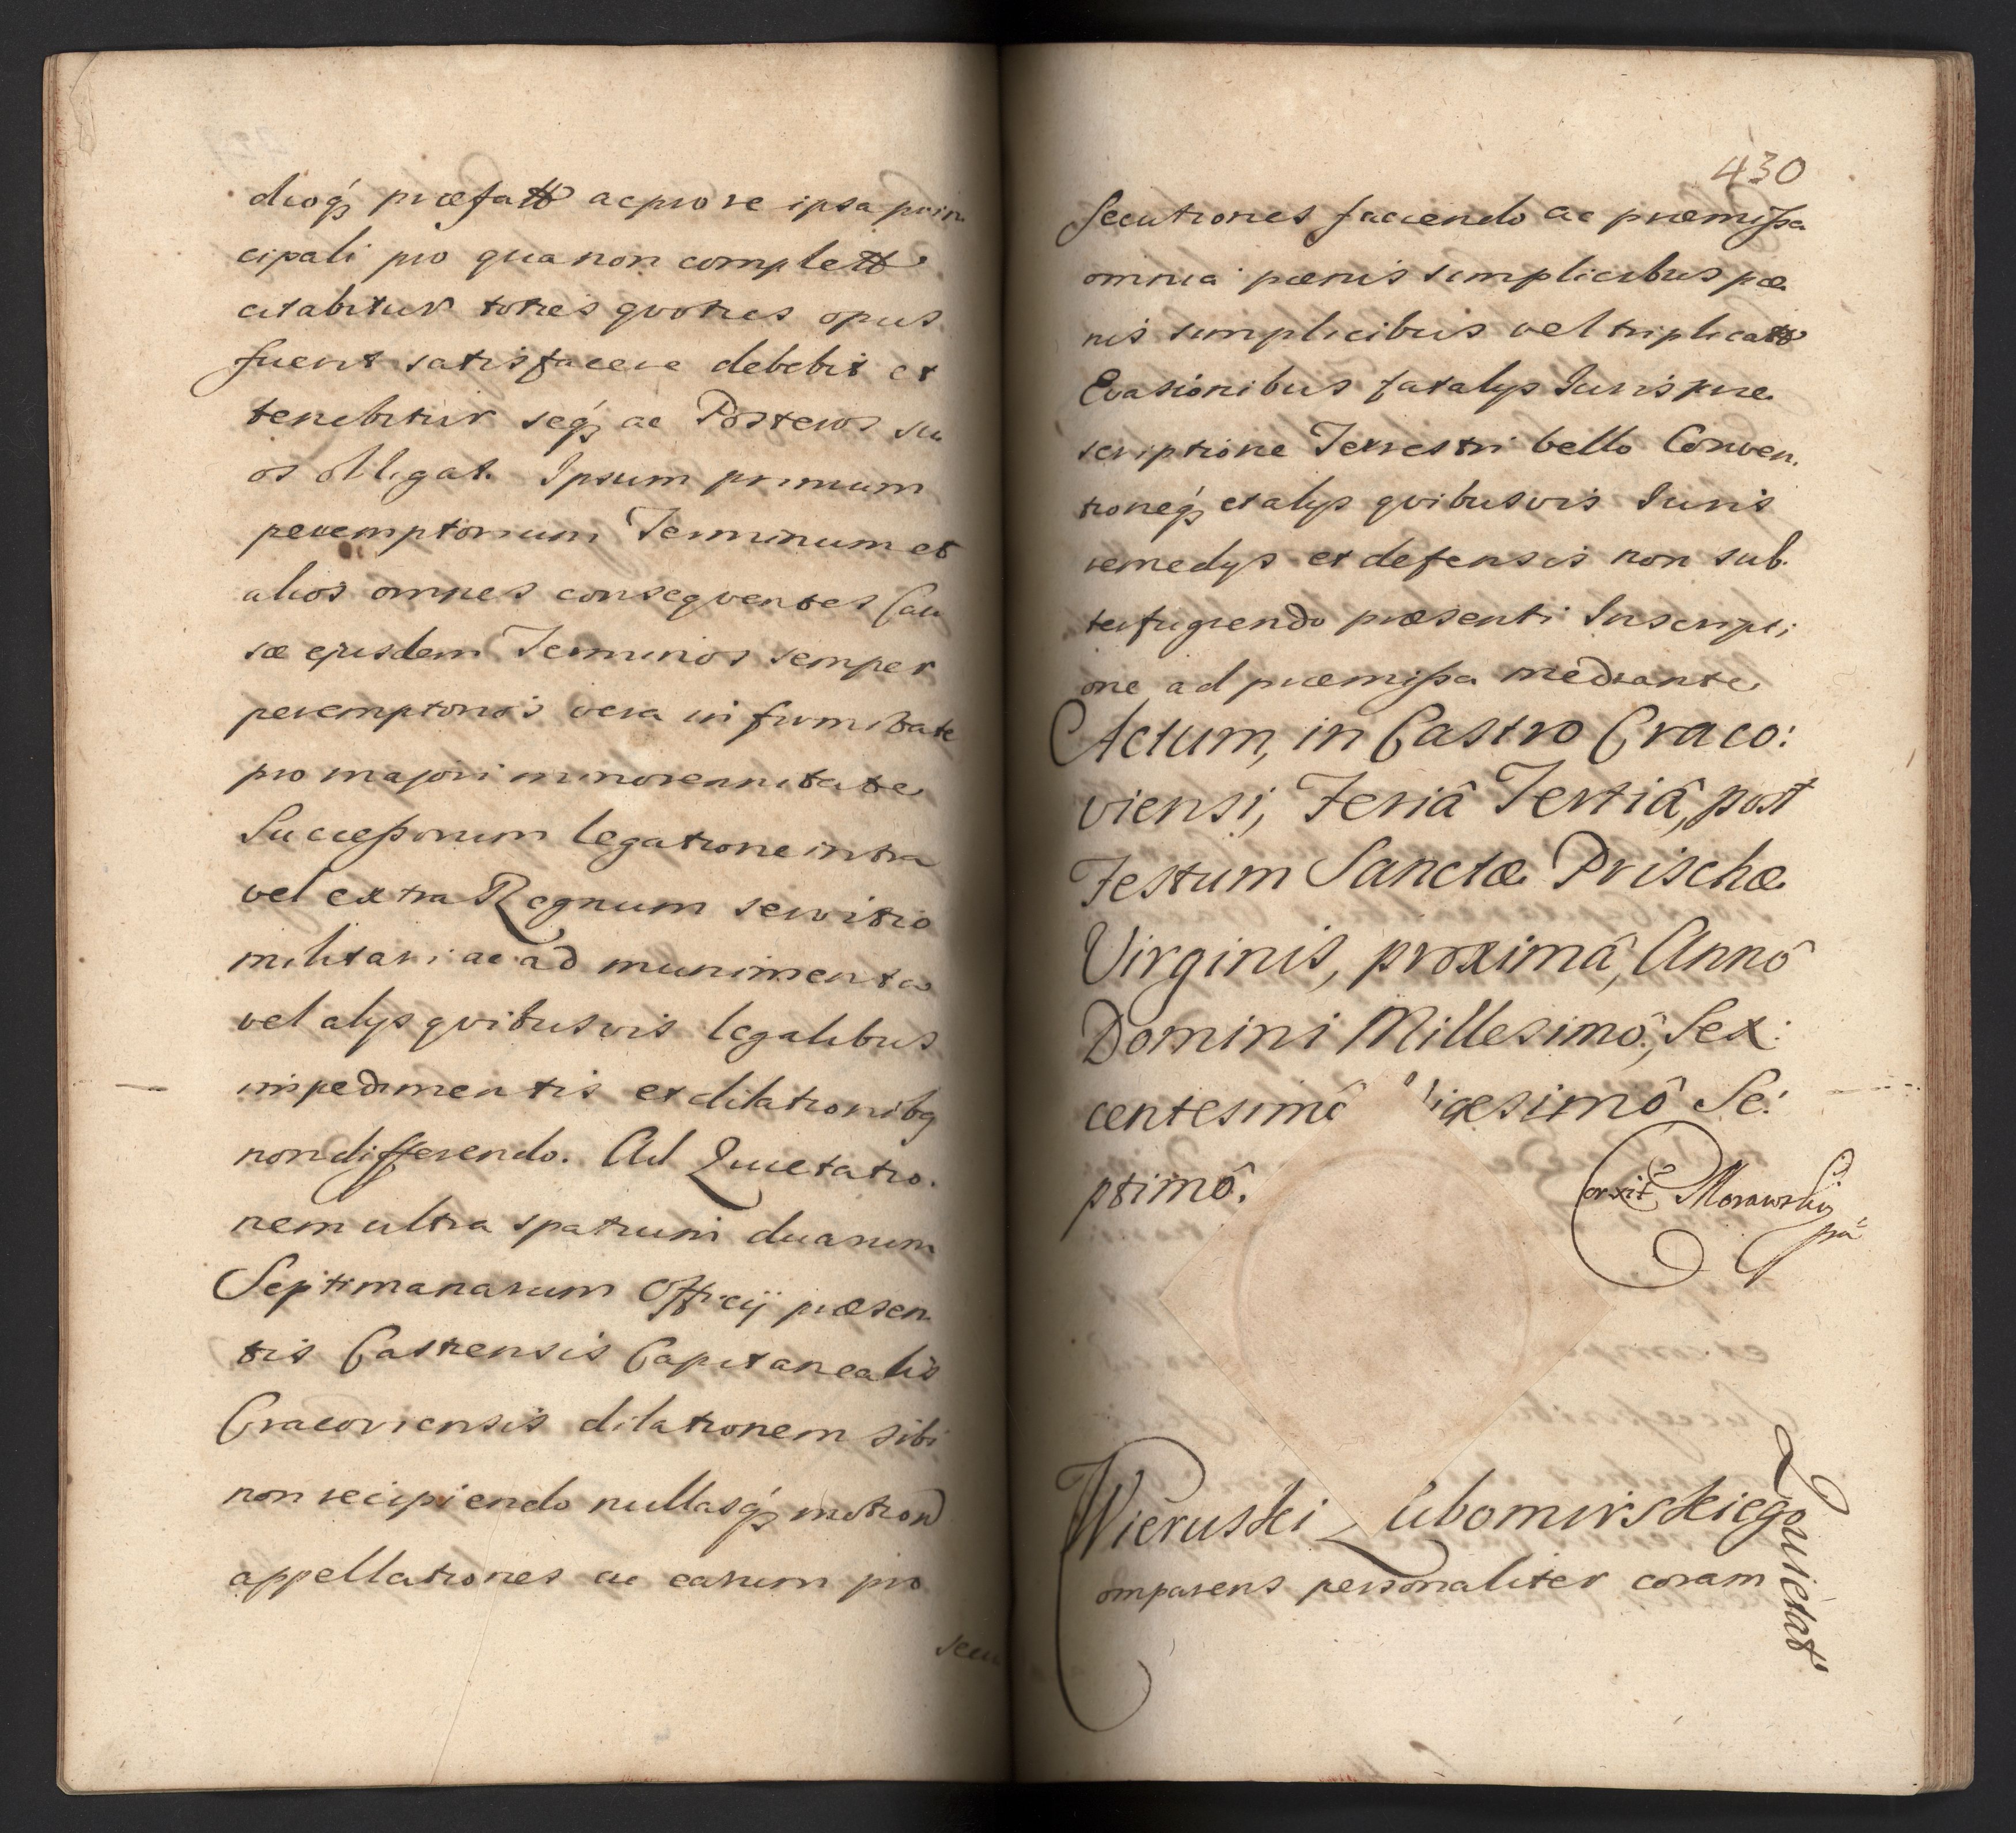 dioq́ꝫ præfatt ac pro re ipsa prin
cipali pro qua non complett
citabitur toties quoties opus
fuerit satisfacere debebit et
tenebitur seq́ꝫ ac Posteros su
os obligat. Ipsum primum
peremptorium Terminum et
alios omnes consequentes Cau
sæ ejusdem Terminos semper
peremptorios vera infirmitate
pro majori minorennitate
Successorum legatione intra
vel extra Regnum servitio
militari ac ad munimenta
vel alys quibusvis legalibus
impedimentis et dilationibq
non differendo. Ad Quietatio.
nem ultra spatium duarum
Septimanarum Officij præsen
tis Castrensis Capitanealis
Cracoviensis dilationem sibi
non recipiendo nullasq́ꝫ motion
appellationes ac earum pro
secu
430
secutiones faciendo ac præmissa
omnia pænis simplicibus pæ
nis simplicibus vel triplicatt
Evasionibus fatalys Iuris præ
scriptione Terrestri bello Conven.
tioneq́ꝫ et alys quibusvis Iuris
remedys et defensis non sub.
terfugiendo præsenti Inscripti
one ad præmissa mediante
Actum, in Castro Craco:
viensi, Feriâ Tertiâ, post
Festum Sanctæ Prischæ
Virginis, proximâ, Annô
Domini Millesimô, Sex:
centesimô igesimô Se:
ptimô.
Corxit Morawski
pa
Wieruski Lubomirskiego
Quietat
omparens personaliter coram